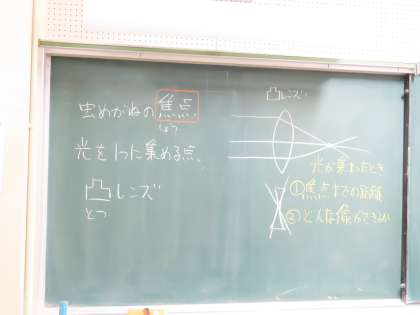 虫めがねの焦点
しょう
光を1つに集める点、
凸レンズ
とつ
凸レンズ
光が集まったとき
①焦点までの距離
②どんな像ができるか